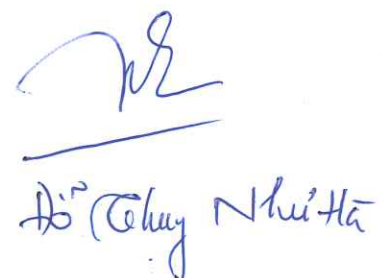 Đỗ Thụy Như Hà